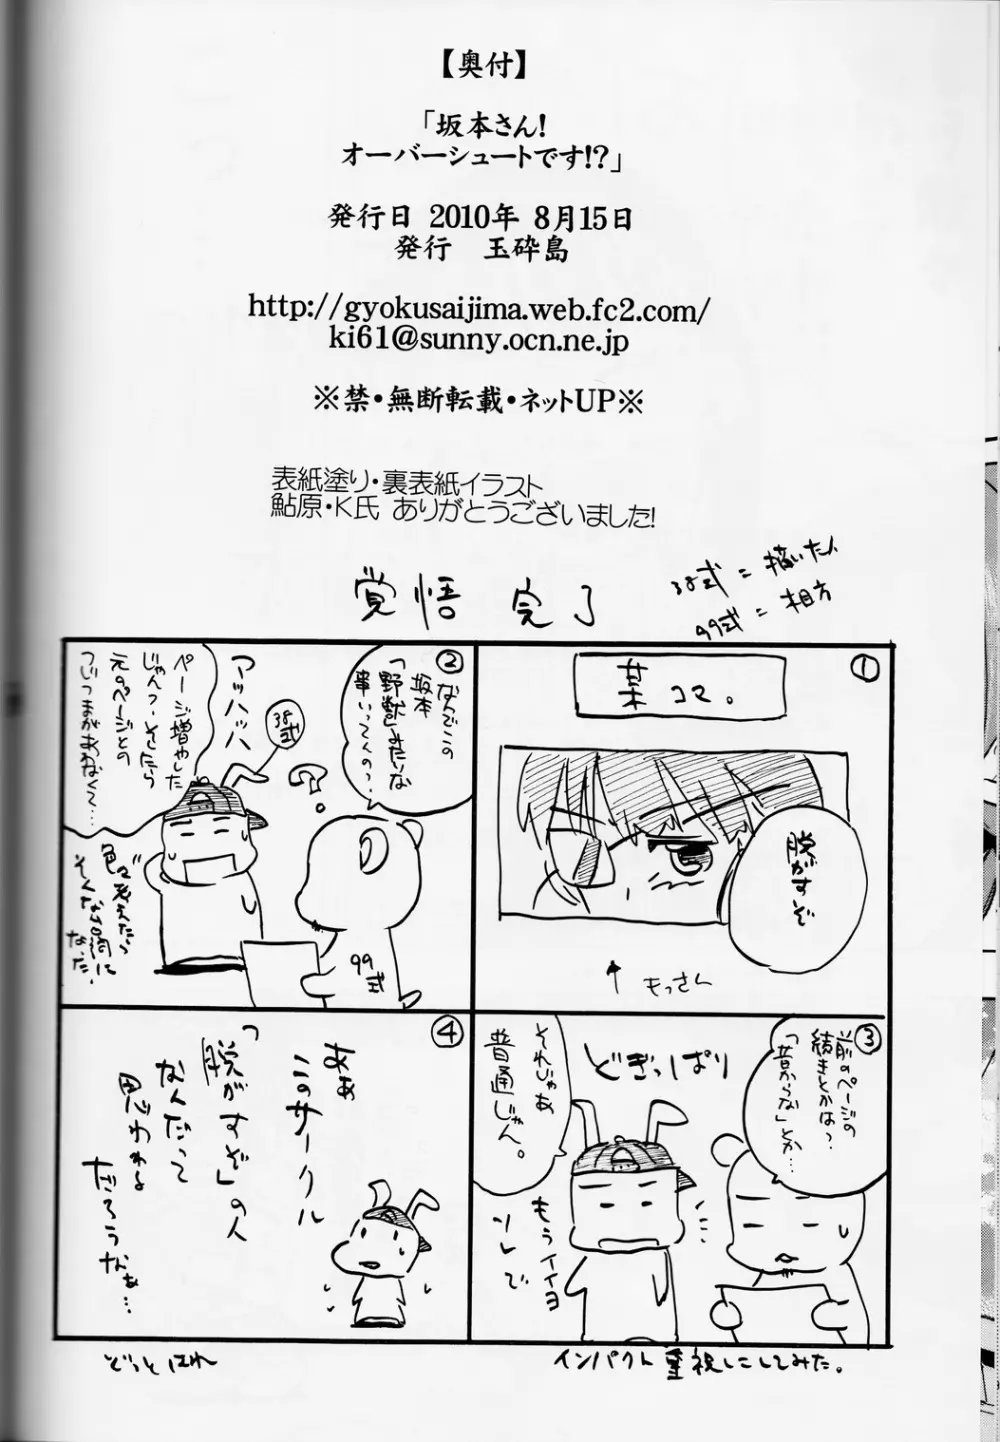 【奥付】
「坂本さん!
オーバーシュートです!?」
発行日 2010年 8月15日
発行 玉砕島
http://gyokusaijima.web.fc2.com/
ki61@sunny.ocn.ne.jp
※禁・無断転載・ネットUP※
表紙塗り・裏表紙イラスト
鮎原・K氏 ありがとうございました!
38式=描いた人
99式=相方
覚悟 完了
①
某コマ。
脱がすぞ
↑もっさん
②
なんでこの
坂本
「野獣」みたいな
事いってんの?
38式
アッハッハ
ページ増やした
じゃん?そしたら
元のページとの
つじつまがあわなくて…
色々考えたら
そんな台詞に
なった。
99式
③
前のページの
続きとかは?
「昔からな」とか…
どきっぱり
それじゃあ
普通じゃん。
もうイイヨ
ソレで
④
ああ
このサークル
「脱がすぞ」の人
なんだって
思われる
だろうなぁ…
どっとはれ
インパクト重視にしてみた。